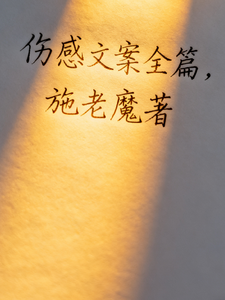 伤感文案全篇，
施老魔著